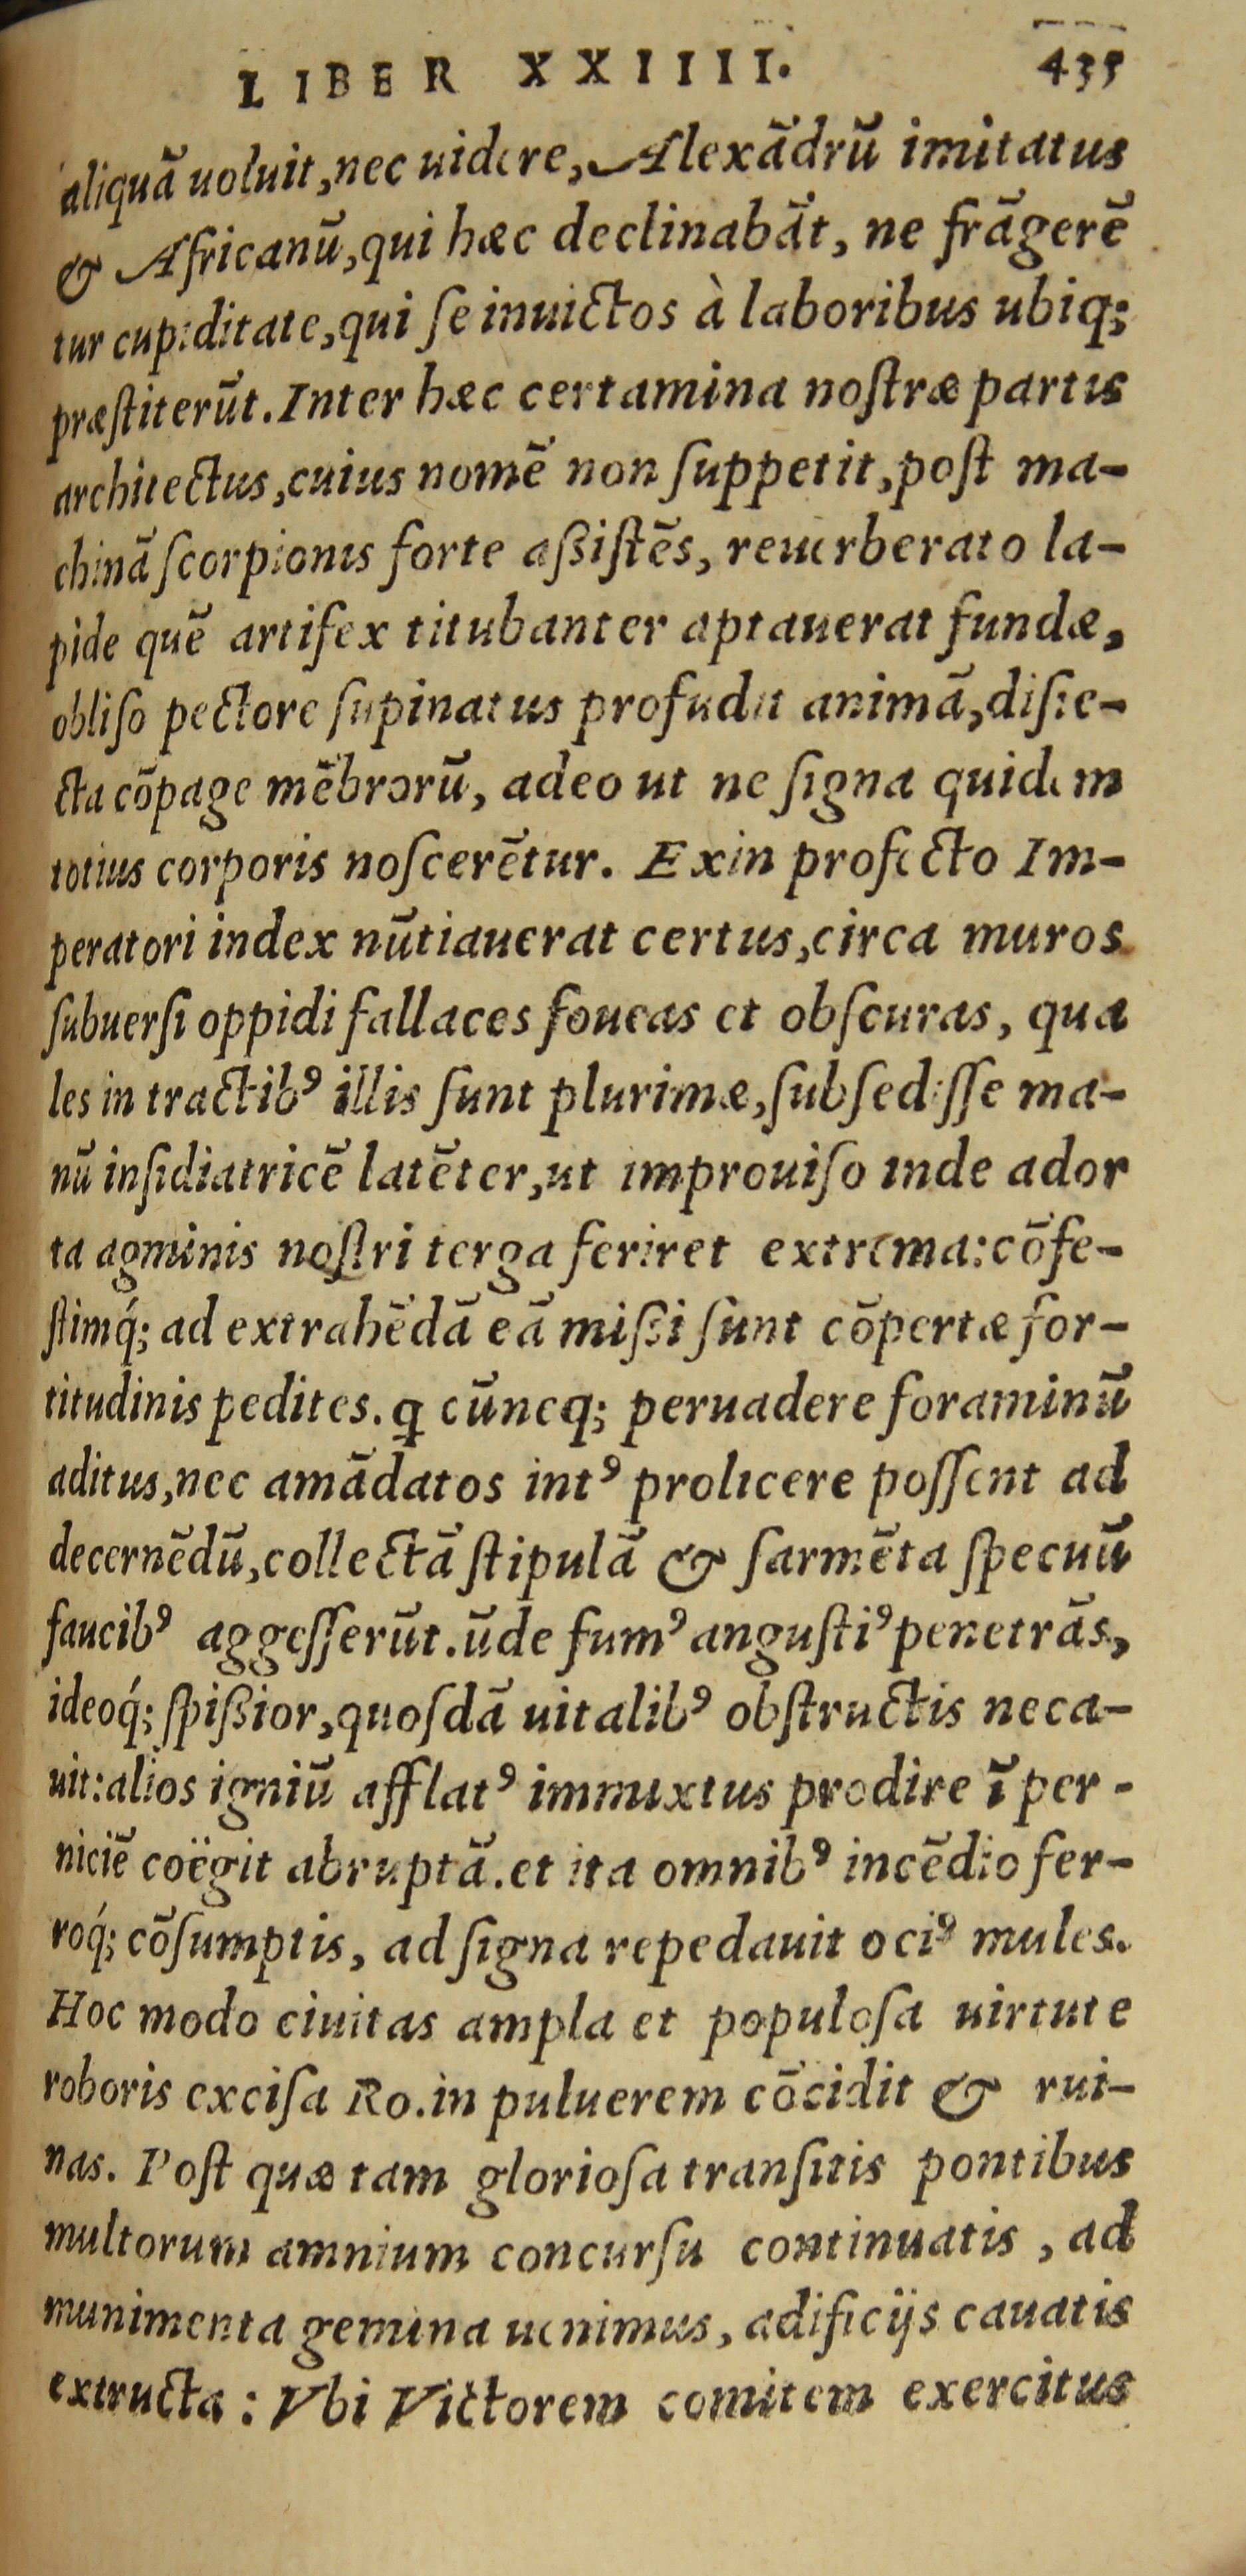 LIBER XXIIII. 435
aliquā uoluit, nec uidere, Alexādrū imitatus
& Africanū, qui hæc declinabāt, ne frāgerē
tur cupiditate, qui ſe inuictos à laboribus ubiq;
præſtiterūt. Inter hæc certamina noſtræ partis
architectus, cuius nomē non ſuppetit, poſt ma-
chinā ſcorpionis forte aßiſtēs, reuerberato la-
pide quē artifex titubanter aptauerat fundæ,
obliſo pectore ſupinatus profudit animā, diſie-
cta cōpage mēbrorū, adeo ut ne ſigna quidem
totius corporis noſcerētur. Exin profecto Im-
peratori index nūtiauerat certus, circa muros
ſubuerſi oppidi fallaces foueas et obſcuras, qua
les in tractibꝰ illis ſunt plurimæ, ſubſediſſe ma-
nū inſidiatricē latēter, ut improuiſo inde ador
ta agminis noſtri terga feriret extrema: cōfe-
ſtimq́; ad extrahēdā eā mißi ſunt cōpertæ for-
titudinis pedites. q cūneq; peruadere foraminū
aditus, nec amādatos intꝰ prolicere poſſent ad
decernēdū, collectā ſtipulā & ſarmēta ſpecuū
faucibꝰ aggeſſerūt. ūde fumꝰ anguſtiꝰ penetrās,
ideoq́; ſpißior, quoſdā uitalibꝰ obſtructis neca-
uit: alios igniū afflatꝰ immixtus prodire ī per-
niciē coëgit abruptā. et ita omnibꝰ incēdio fer-
roq́; cōſumptis, ad ſigna repedauit ociꝰ mules.
Hoc modo ciuitas ampla et populoſa uirtute
roboris exciſa Ro. in puluerem cōcidit & rui-
nas. Poſt quæ tam glorioſa tranſitis pontibus
multorum amnium concurſu continuatis, ad
munimenta gemina uenimus, ædificijs cauatis
extructa: Vbi Victorem comitem exercitus